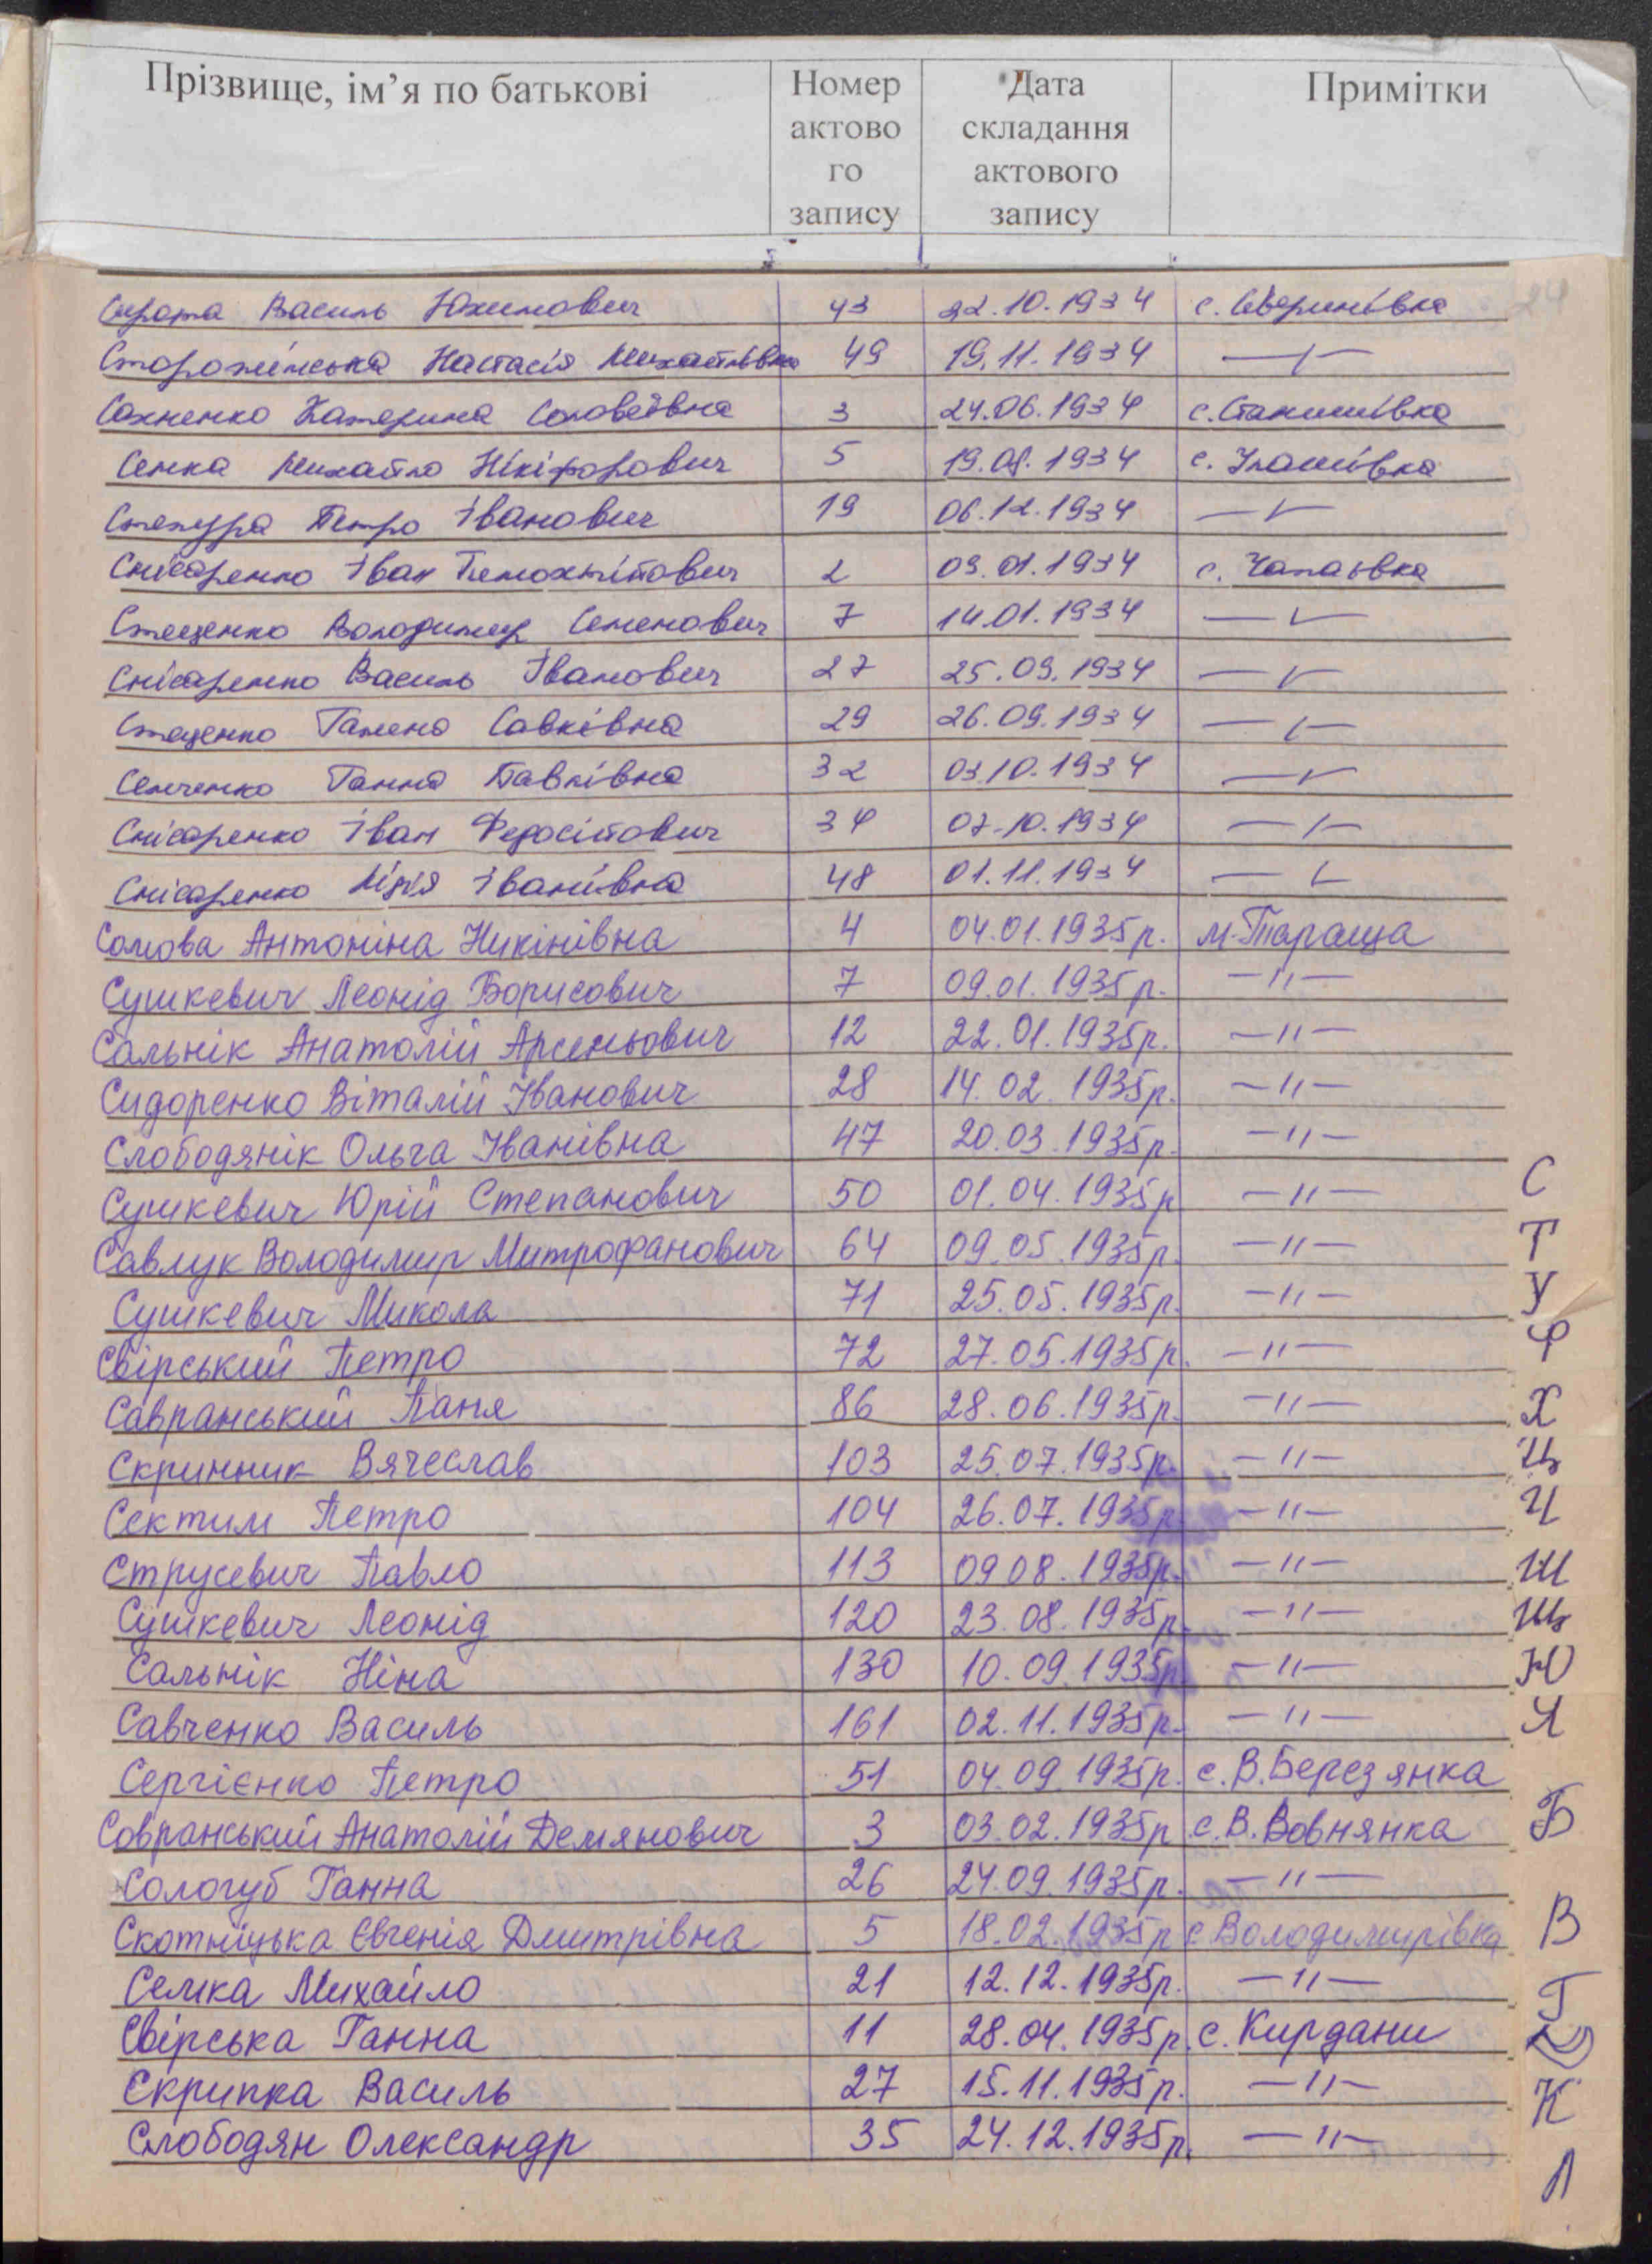 Прізвище, ім’я по батькові Номер актово го запису Дата складання актового запису Примітки
Сирота Василь Юхимович 43 22.10.1934 с. Северинівка
Сторожинська Настасія Михайлівна 49 19.11.1934 —//—
Сахненко Катерина Соловеївна 3 24.06.1934 с. Станишівка
Семка Михайло Нікіфорович 5 19.08.1934 с. Улашівка
Степура Петро Іванович 19 06.12.1934 —//—
Снісаренко Іван 2 03.01.1934 с. Чапаєвка
Стеценко Володимир Семенович 7 14.01.1934 —//—
Снісаренко Василь Іванович 27 25.09.1934 —//—
Стеценко Савківна 29 26.09.1934 —//—
Семченко Ганна Павлівна 32 03.10.1934 —//—
Снісаренко Іван Федосійович 34 07.10.1934 —//—
Снісаренко Лідія Іванівна 48 01.11.1934 —//—
Сомова Антоніна Никінівна 4 04.01.1935р. м. Тараща
Сушкевич Леонід Борисович 7 09.01.1935р. —//—
Сальнік Анатолій Арсеньович 12 22.01.1935р. —//—
Сидоренко Віталій Іванович 28 14.02.1935р. —//—
Слободянік Ольга Іванівна 47 20.03.1935р. —//—
Сушкевич Юрій Степанович 50 01.04.1935р —//—
Савлук Володимир Митрофанович 64 09.05.1935р. —//—
Сушкевич Микола 71 25.05.1935р. —//—
Свірський Петро 72 27.05.1935р. —//—
Савранський Паня 86 28.06.1935р. —//—
Скринник Вячеслав 103 25.07.1935р. —//—
Сектим Петро 104 26.07.1935р. —//—
Струсевич Павло 113 09 08.1935р. —//—
Сушкевич Леонід 120 23.08.1935р. —//—
Сальнік Ніна 130 10.09.1935р. —//—
Савченко Василь 161 02.11.1935р. —//—
Сергієнко Петро 51 04.09.1935р. с. В. Березянка
Совранський Анатолій Демянович 3 03.02.1935р с. В. Вовнянка
Сологуб Ганна 26 24.09.1935р. —//—
Скотніцька Євгенія Дмитрівна 5 18.02.1935р с Володимирівка
Семка Михайло 21 12.12.1935р. —//—
Свірська Ганна 11 28.04.1935р. с. Кирдани
Скрипка Василь 27 15.11.1935р. —//—
Слободян Олександр 35 24.12.1935р. —//—
С
Т
У
Ф
Х
Ц
Ч
Ш
Щ
Ю
Я
Б
В
Г
К
Л